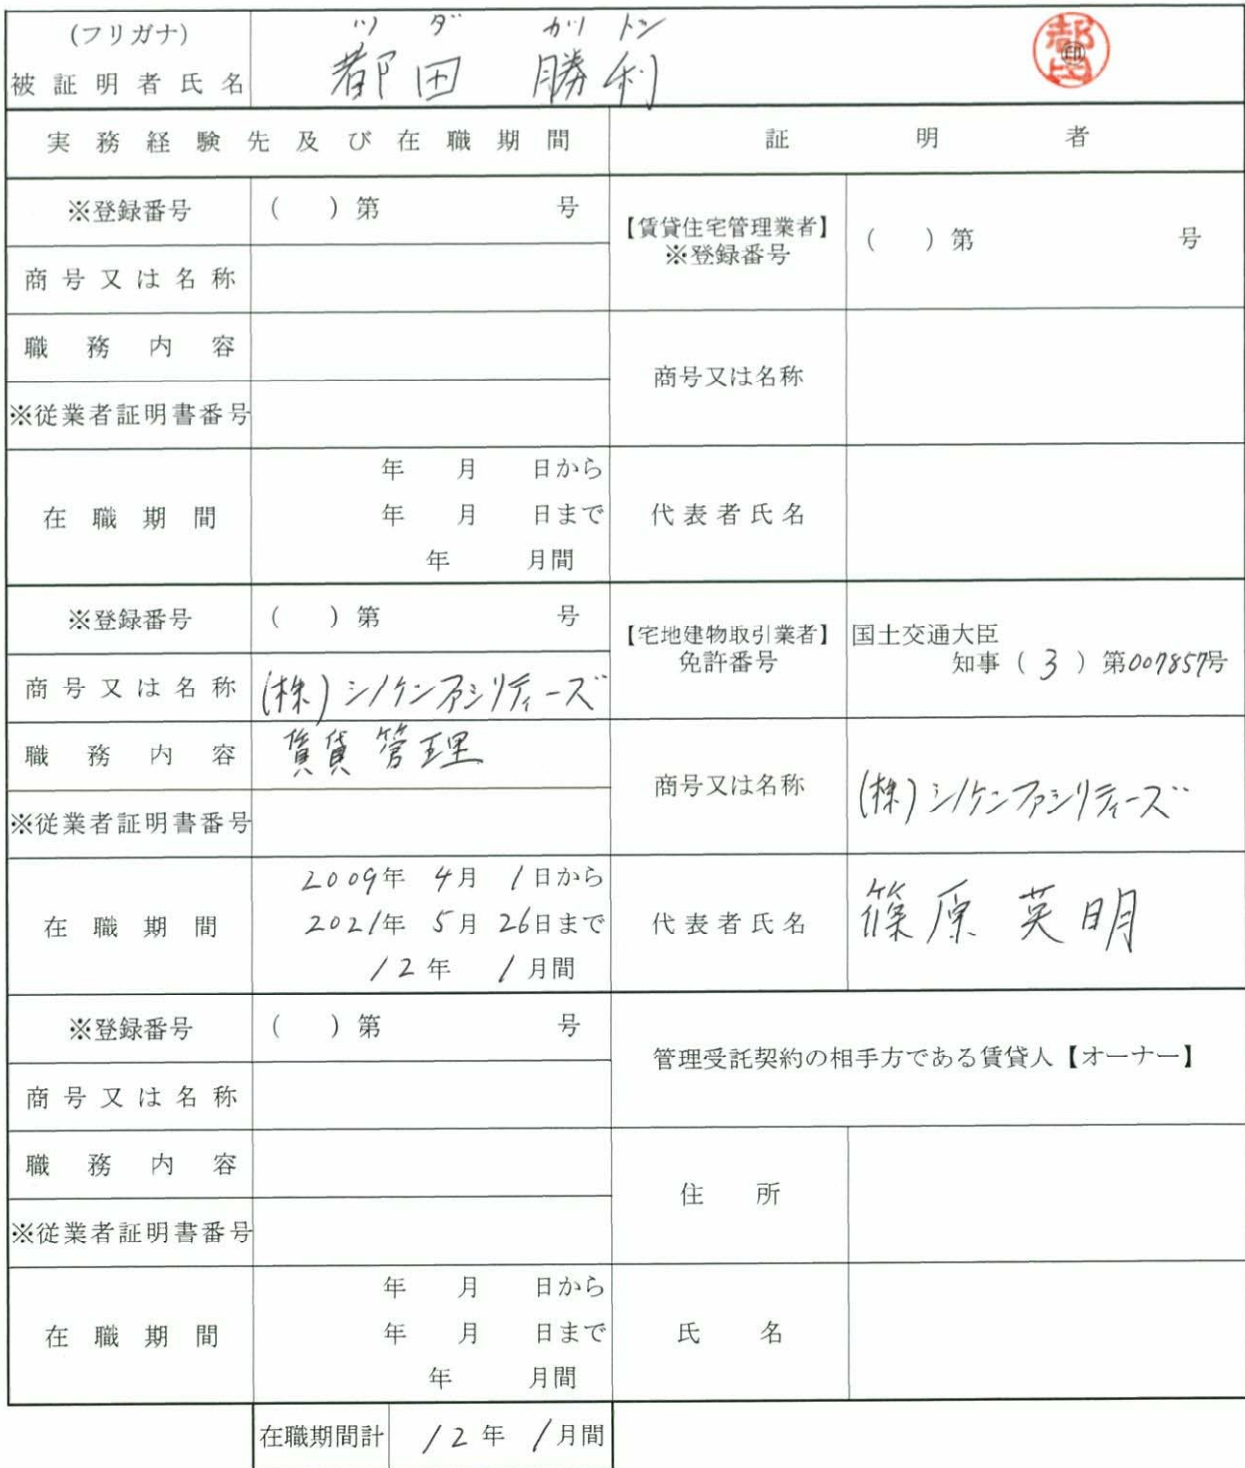 (フリガナ) ツダ カツトシ
被証明者氏名 都田 勝利 ㊞
実務経験先及び在職期間 証明者
※登録番号 ( ) 第 号
商号又は名称
職務内容
※従業者証明書番号
在職期間
年 月 日から
年 月 日まで
年 月間
【賃貸住宅管理業者】
※登録番号
( ) 第 号
商号又は名称
代表者氏名
※登録番号 ( ) 第 号
商号又は名称 (株)シノケンファシリティーズ
職務内容 賃貸管理
※従業者証明書番号
在職期間
2009年 4月 1日から
2021年 5月 26日まで
12年 1月間
【宅地建物取引業者】
免許番号
国土交通大臣
知事 ( 3 ) 第007857号
商号又は名称 (株)シノケンファシリティーズ
代表者氏名 篠原 英明
※登録番号 ( ) 第 号
商号又は名称
職務内容
※従業者証明書番号
在職期間
年 月 日から
年 月 日まで
年 月間
管理受託契約の相手方である賃貸人【オーナー】
住所
氏名
在職期間計 12年 1月間